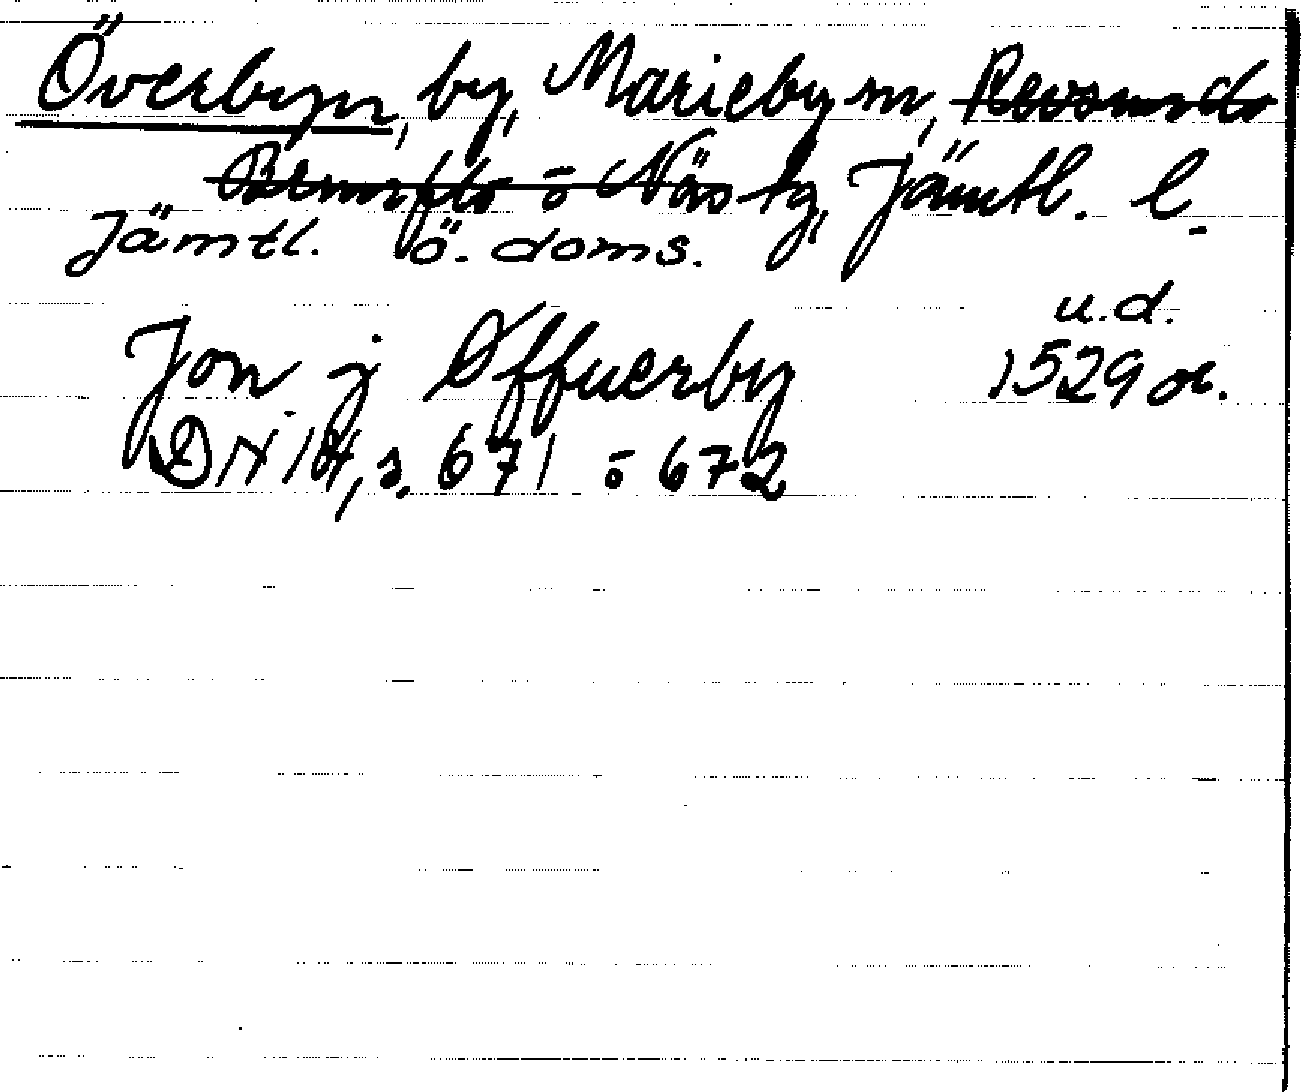 Överbyn, by, Marieby sn, Revsunds
Brunflo o Näs tg, Jämtl. l.
Jämtl. ö. doms.
u.d.
Jon j Øffuerby 1529 or.
DN 14, s. 671 o 672